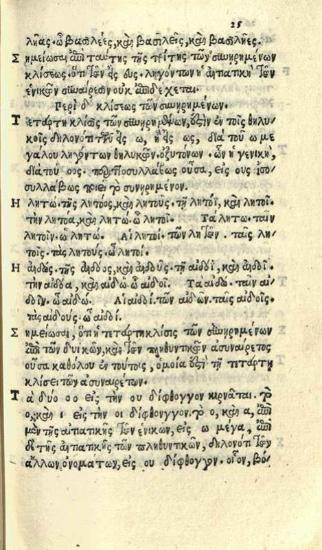 25
λῆας. ὦ βασιλέες, καὶ βασιλεῖς, καὶ βασιλῆς.
Σημείωσαι ἐπὶ ταύτης τῆς τρίτης τῶν συνῃρημένων
κλίσεως. ὅτι τῶν εἰς υς, ληγόντων ἡ αἰτιατικὴ τῶν
ἑνικῶν συναίρεσιν οὐκ ἐπιδέχεται.
Περὶ δ κλίσεως τῶν συνῃρημένων.
Τετάρτη κλίσις τῶν συνῃρημένων, ἐστὶν ἐν τοῖς θηλυ
κοῖς δηλονότι τῆς ω, ἢ ῆς ως, διὰ τοῦ ω με
γάλου ληγόντων θηλυκῶν ὀξυτόνων. ὧν ἡ γενικὴ,
διὰ τοῦ ος. περιττοσυλλάβως οὖσα, εἰς ους ἰσο
συλλάβως ποιεῖ τὸ συνῃρημένον.
Ἡ λητὼ. τῆς λητόος, καὶ λητοῦς. τῇ λητόϊ, καὶ λητοῖ.
τὴν λητόα, καὶ λητώ. ὦ λητοῖ. Τὰ λητώ. ταῖν
λητοῖν. ὦ λητώ. Αἱ λητοί. τῶν λητῶν. ταῖς λη
τοῖς. τὰς λητούς. ὦ λητοί.
Ἡ αἰδώς. τῆς αἰδόος, καὶ αἰδοῦς. τῇ αἰδόϊ, καὶ αἰδοῖ.
τὴν αἰδόα, καὶ αἰδώ. ὦ αἰδοῖ. Τὰ αἰδώ. ταῖν αἰ
δοῖν. ὦ αἰδώ. Αἱ αἰδοί. τῶν αἰδῶν. ταῖς αἰδοῖς.
τὰς αἰδούς. ὦ αἰδοί.
Σημείωσαι, ὅτι ἡ τετάρτη κλίσις τῶν συνῃρημένων
ἐπὶ τῶν δυϊκῶν, καὶ τῶν πληθυντικῶν ἀσυναίρετος
οὖσα καθόλου ἐν τούτοις, ὁμοία ἐστὶ τῇ τετάρτῃ
κλίσει τῶν ἀσυναιρέτων.
Τὰ δύο οο εἰς τὴν ου δίφθογγον κιρνᾶται. τὸ
ο, καὶ ι εἰς τὴν οι δίφθογγον. τὸ ο, καὶ α, ἐπὶ
μὲν τῆς αἰτιατικῆς τῶν ἑνικῶν, εἰς ω μέγα, ἐπὶ
δὲ τῆς αἰτιατικῆς τῶν πληθυντικῶν, δηλονότι τῶν
ἄλλων ὀνομάτων, εἰς ου δίφθογγον. οἷον, βό-